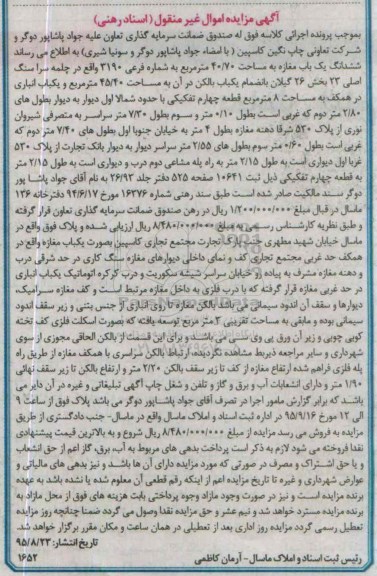 آگهی مزایده اموال غیر منقول (اسناد رهنی)
بموجب پرونده اجرائی کلاسه فوق له صندوق ضمانت سرمایه گذاری تعاون علیه جواد پاشاپور دوگر و
شرکت تعاونی چاپ نگین کاسپین ( با امضاء جواد پاشاپور دوگر و سونیا شیری) به اطلاع می رساند
ششدانگ یک باب مغازه به مساحت ۴۰/۷۰ مترمربع به شماره فرعی ۳۱۹۰ واقع در چلمه سرا سنگ
اصلی ۲۳ بخش ۲۶ گیلان بانضمام یکباب بالکن در آن به مساحت ۴۵/۴۰ مترمربع و یکباب انباری
در همکف به مساحت ۸ مترمربع قطعه چهارم تفکیکی با حدود شمالا اول دیوار به دیوار بطول های
۲/۸۰ متر دوم که غربی است بطول ۰/۱۰ متر و سوم بطول ۷/۳۰ متر سراسر به متصرفی شیروان
نوری از پلاک ۵۳۰ شرقا دهنه مغازه بطول ۴ متر به خیابان جنوبا اول بطول های ۷/۴۰ متر دوم که
غربی است بطول ۰/۶۰ متر سوم بطول های ۲/۵۵ متر سراسر دیوار به دیوار بانک تجارت از پلاک ۵۳۰
غربا اول دیواری است به طول ۲/۱۵ متر به راه پله مشاعی دوم درب و دیواری است به طول ۲/۱۵ متر
به قطعه چهارم تفکیکی ذیل ثبت ۱۰۶۴۱ صفحه ۵۲۵ دفتر جلد ۲۶/۹۳ به نام آقای جواد پاشا پور
دوگر سند مالکیت صادر شده است طبق سند رهنی شماره ۱۶۳۷۶ مورخ ۹۴/۶/۱۷ دفترخانه ۱۳۶
ماسال در قبال مبلغ ۱/۲۰۰/۰۰۰/۰۰۰ ریال در رهن صندوق ضمانت سرمایه گذاری تعاون قرار گرفته
و طبق نظریه کارشناس رسمی به مبلغ ۸/۴۸۰/۰۰۰/۰۰۰ ریال ارزیابی شده و پلاک فوق واقع در
ماسال خیابان شهید مطهری جنب بانک تجارت مجتمع تجاری کاسپین بصورت یکباب مغازه واقع در
همکف حد غربی مجتمع تجاری کف و نمای داخلی دیوارهای مغازه سنگ کاری در حد شرقی درب
و دهنه مغازه مشرف به پیاده رو خیابان سراسر شیشه سکوریت و درب کرکره اتوماتیک یکباب انباری
در حد غربی مغازه قرار گرفته که با درب فلزی به داخل مغازه مرتبط است و کف مغازه سرامیک،
دیوارها و سقف آن اندود سیمانی می باشد بالکن مغازه تا روی انباری از جنس بتنی و زیر سقف اندود
سیمانی بوده و مابقی به مساحت تقریبی ۳ متر مربع توسعه یافته که بصورت اسکلت فلزی کف تخته
کوبی چوبی و زیر آن ورق پی وی سی می باشند و برای این قسمت از بالکن الحاقی مجوزی از سوی
شهرداری و سایر مراجعه ذیربط مشاهده نگردیده، ارتباط بالکن سراسری با همکف مغازه از طریق راه
پله فلزی فراهم شده ارتفاع مغازه از کف تا زیر سقف بالکن ۲/۲۰ متر و ارتفاع بالکن تا زیر سقف نهائی
۱/۹۰ متر و دارای انشعابات آب و برق و گاز و تلفن و شغل چاپ آگهی تبلیغاتی و غیره در آن دایر می
باشد که برابر گزارش مامور اجرا در تصرف آقای جواد پاشاپور دوگر می باشد پلاک فوق از ساعت ۹
الی ۱۲ مورخ ۹۵/۹/۱۶ در اداره ثبت اسناد و املاک ماسال واقع در ماسال- جنب دادگستری از طریق
مزایده به فروش می رسد مزایده از مبلغ ۸/۴۸۰/۰۰۰/۰۰۰ ریال شروع و به بالاترین قیمت پیشنهادی
نقدا فروخته می شود لازم به ذکر است پرداخت بدهی های مربوط به آب، برق، گاز اعم از حق انشعاب
و یا حق اشتراک و مصرف در صورتی که مورد مزایده دارای آن ها باشد و نیز بدهی های مالیاتی و
عوارض شهرداری و غیره تا تاریخ مزایده اعم از اینکه رقم قطعی آن معلوم شده یا نشده باشد به عهده
برنده مزایده است و نیز در صورت وجود مازاد وجوه پرداختی بابت هزینه های فوق از محل مازاد به
برنده مزایده مسترد خواهد شد و نیم عشر و حق مزایده نقدا وصول می گردد ضمنا چنانچه روز مزایده
تعطیل رسمی گردد مزایده روز اداری بعد از تعطیلی در همان ساعت و مکان مقرر برگزار خواهد شد.
تاریخ انتشار: ۹۵/۸/۲۳
رئیس ثبت اسناد و املاک ماسال - آرمان کاظمی
۱۶۵۲